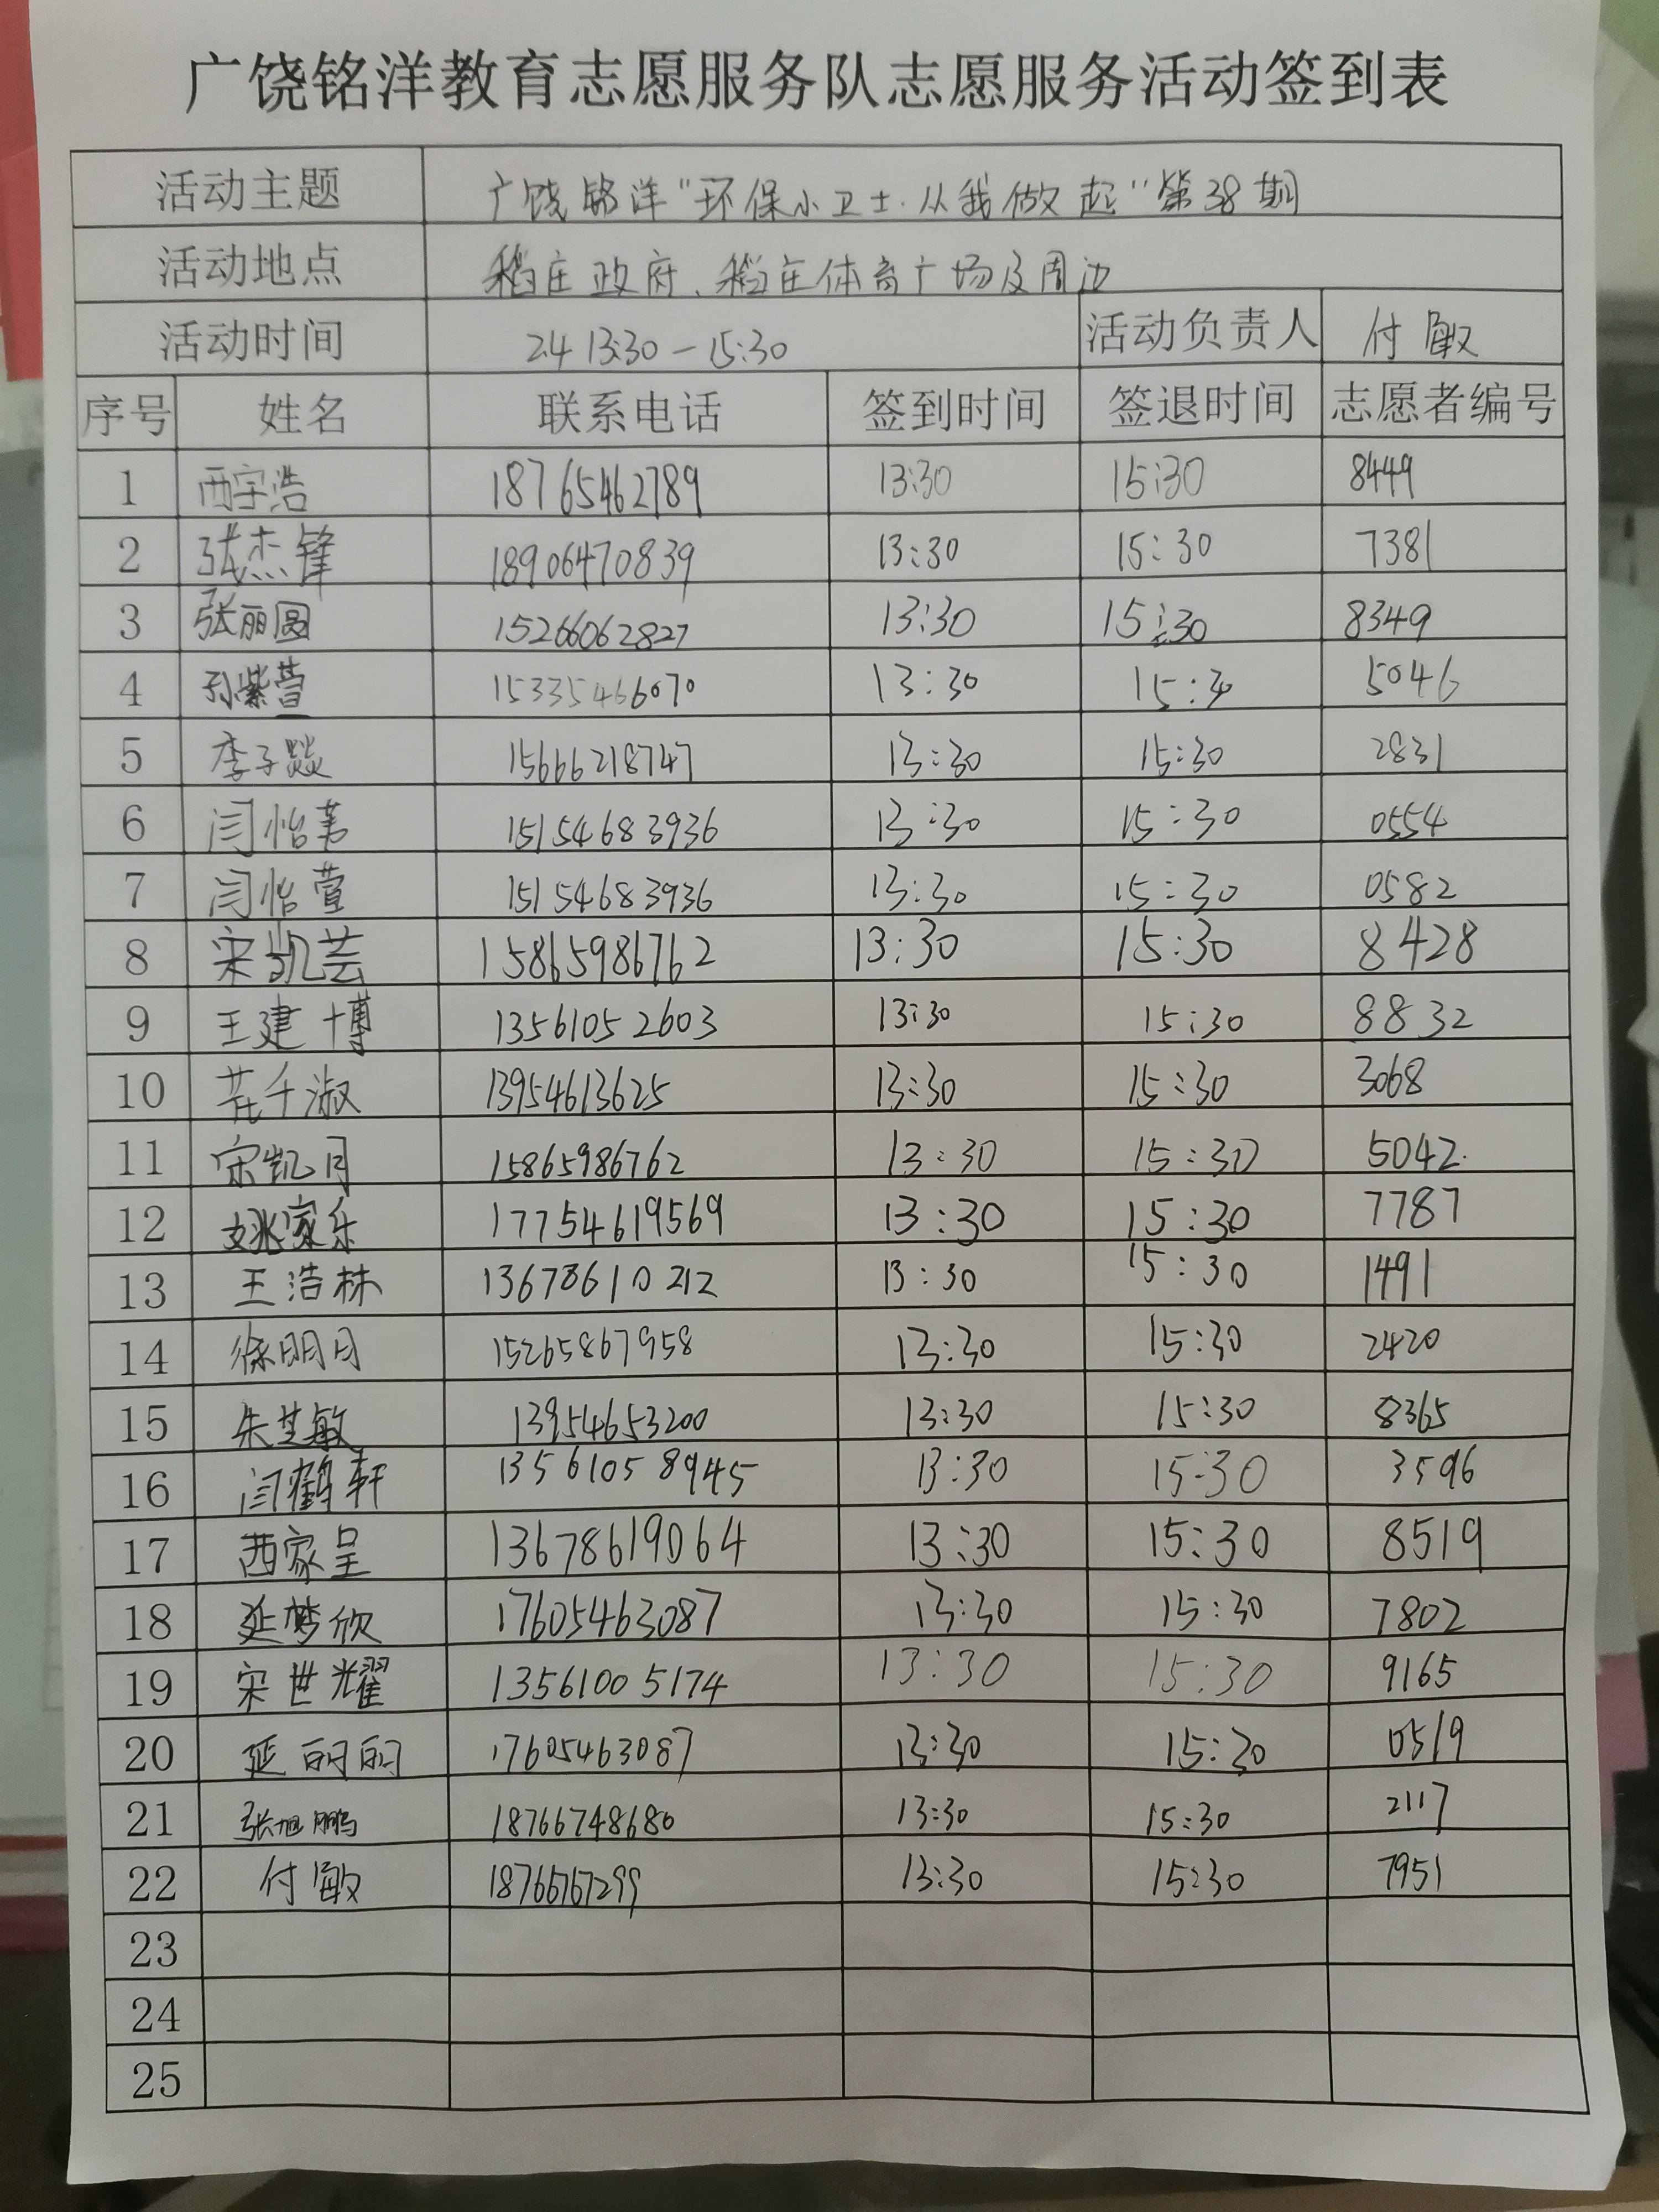 广饶铭洋教育志愿服务队志愿服务活动签到表
活动主题 广饶铭洋"环保小卫士·从我做起"第38期
活动地点 稻庄政府、稻庄体育广场及周边
活动时间 2.4 13:30-15:30 活动负责人 付敏
序号 姓名 联系电话 签到时间 签退时间 志愿者编号
1 西宇浩 18765462789 13:30 15:30 8449
2 张杰锋 18906470839 13:30 15:30 7381
3 张丽圆 15266062827 13:30 15:30 8349
4 孙紫萱 15335466070 13:30 15:30 5046
5 李子燚 15666218747 13:30 15:30 2831
6 闫怡 15154683936 13:30 15:30 0554
7 闫怡萱 15154683936 13:30 15:30 0582
8 宋凯芸 15865986762 13:30 15:30 8428
9 王建博 13561052603 13:30 15:30 8832
10 花千淑 13954613625 13:30 15:30 3068
11 宋凯月 15865986762 13:30 15:30 5042
12 姚家乐 17754619569 13:30 15:30 7787
13 王浩林 13678610212 13:30 15:30 1491
14 徐明月 15265867958 13:30 15:30 2420
15 朱芝敏 13954653200 13:30 15:30 8365
16 闫鹤轩 13561058945 13:30 15:30 3596
17 西家呈 13678619064 13:30 15:30 8519
18 延梦欣 17605463087 13:30 15:30 7802
19 宋世耀 13561005174 13:30 15:30 9165
20 延 17605463087 13:30 15:30 0519
21 张旭鹏 18766748680 13:30 15:30 2117
22 付敏 18766767299 13:30 15:30 7951
23
24
25